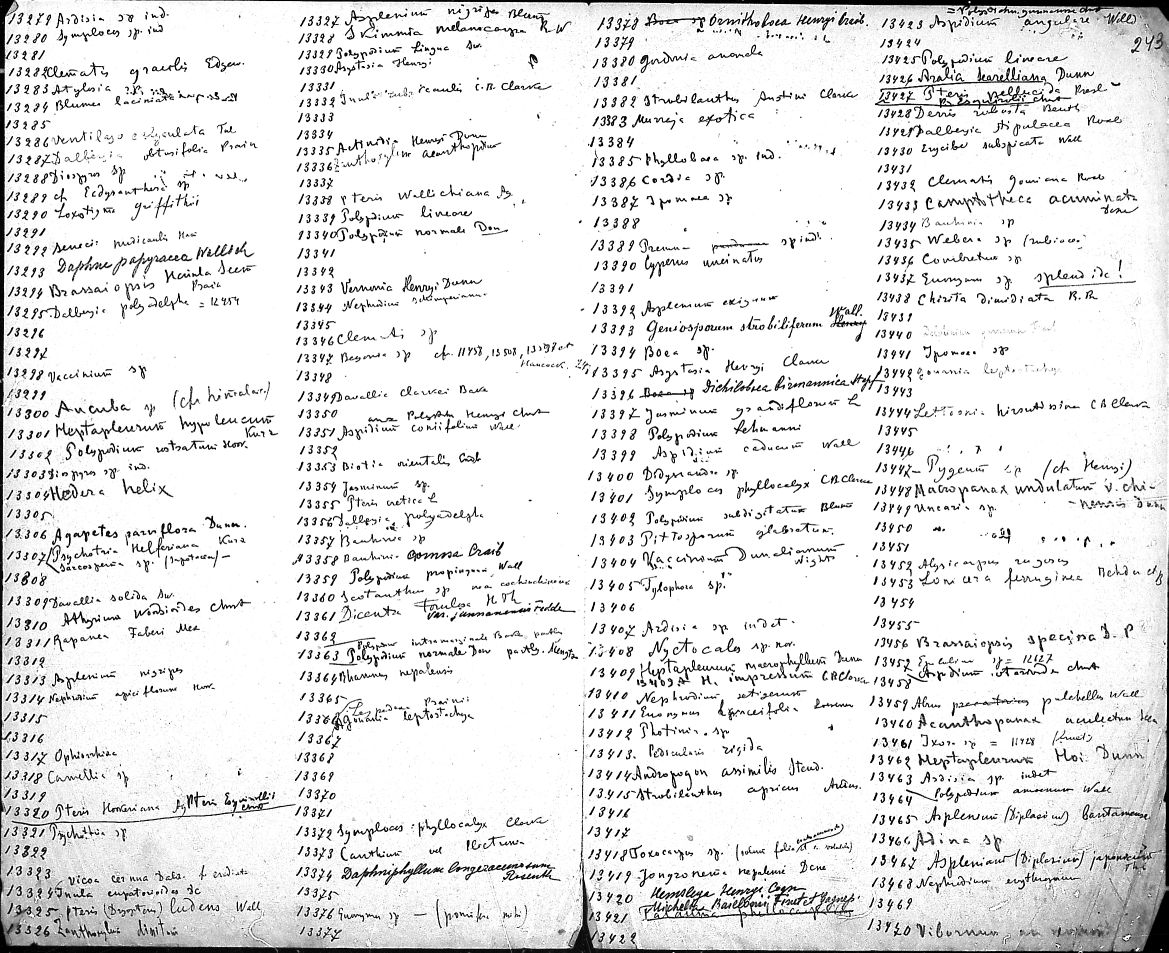 243
13279 Ardisia sp ind.
13280 Symplocos sp. ind
13281
13282 Clematis gracilis Edgew.
13283 Atylosia
13284 Blumea laciniata
13285
13286 Ventilago calyculata Tul
13287 Dalbergia obtusifolia Prain
13288 Diospyros sp
13289 cf Ecdysanthera sp
13290 Loxostigma griffithii
13291
13292 Senecio nudicaulis Ham
13293 Daphne papyracea Wallich
13294 Brassaiopsis Hainla Seem
13295 Dalbergia polyadelpha Prain = 12454
13296
13297
13298 Vaccinium sp
13299
13300 Aucuba sp (cfr himalaica)
13301 Heptapleurum hypoleucum Kurz
13302 Polypodium rostratum Hook
13303 Diospyros sp. ind.
13304 Hedera helix
13305
13306 Agapetes parviflora Dunn.
13307 Psychotria Helferiana Kurz
Sarcosperma sp. (Sapotaceae)
13308
13309 Davallia solida Sw.
13310 Athyrium Woodsioides Christ
13311 Rapanea Faberi Mez
13312
13313 Asplenium nigripes
13314 Nephrodium apiciflorum Hook.
13315
13316
13317 Ophiorrhiza
13318 Camellia sp
13319
13320 Pteris Hookeriana Ag Pteris Esquirolii Christ
13321 Psychotria sp
13322
13323 Vicoa cernua Dalz.
13324 Inula eupatorioides DC
13325 Pteris (Doryopteris) ludens Wall
13326 Zanthoxylum
13327 Asplenium nigripes Blume
13328 Skimmia melanocarpa R. W
13329 Polypodium Lingua Sw.
13330 Asystasia Henryi
13331
13332 Inula C.B. Clarke
13333
13334
13335 Actinidia Henryi Dunn
13336 Zanthoxylum acanthopodium
13337
13338 Pteris Wallichiana Ag.
13339 Polypodium lineare
13340 Polypodium normale Don
13341
13342
13343 Vernonia Henryi Dunn
13344 Nephrodium
13345
13346 Clematis sp
13347 Begonia sp cfr. 11458, 13508, 13598 et
Hancock
13348
13349 Davallia Clarkei Baker
13350 Polypodium Henryi Christ
13351 Aspidium coniifolium Wall.
13352
13353 Biotia orientalis
13354 Jasminum sp.
13355 Pteris cretica L
13356 Dalbergia polyadelpha
13357 Bauhinia sp
13358 Bauhinia comosa Craib
13359 Polypodium propinquum Wall
13360 Leotanthus sp cochinchinense
13361 Dicentra Torulosa H Th
var. yunnanensis Fedde
13362
13363 Polypodium intramarginale Bak. partly
Polypodium normale Don partly.
13364 Rhamnus nepalensis
13365
13366 Lespedeza Prainii
Gouania leptostachya
13367
13368
13369
13370
13371
13372 Symplocos phyllocalyx Clarke
13373 Canthium vel Plectronia
13374 Daphniphyllum longeracemosum Rosenth
13375
13376 Evonymus sp — (
13377
13378 Boea sp Ornithoboea Henryi Craib.
13379
13380 Gordonia anomala
13381
13382 Strobilanthus Austini Clarke
13383 Murraya exotica
13384
13385 Phylloboea sp. ind.
13386 Cordia sp.
13387 Ipomaea sp
13388
13389 Premna sp ind.
13390 Cyperus uncinatus
13391
13392 Asplenium exiguum
13393 Geniosporum strobiliferum Henry Wall.
13394 Boea sp.
13395 Asystasia Henryi Clarke
13396 Boea sp Dichiloboea birmannica Stapf
13397 Jasminum grandiflorum L
13398 Polypodium Lehmanni
13399 Aspidium caducum Wall
13400 Didymandra sp
13401 Symplocos phyllocalyx C.B. Clarke
13402 Polypodium subdigitatum Blume
13403 Pittosporum glabratum
13404 Vaccinium Dunalianum Wight
13405 Tylophora sp.
13406
13407 Ardisia sp indet.
13408 Nyctocalos sp. nov.
13409 Heptapleurum macrophyllum Dunn
13409A H. impressum C.B. Clarke
13410 Nephrodium setigerum
13411 Euonymus Loesener
13412 Photinia sp
13413. Pedicularis rigida
13414 Andropogon assimilis Steud.
13415 Strobilanthus apricus
13416
13417
13418 Toxocarpus sp.
13419 Jongronena nepalense Dene
13420 Hemsleya Henryi Cogn
13421 Michelia Baillonii Finet et Gagnep.
13422
13423 Aspidium angulare Willd
13424
13425 Polypodium lineare
13426 Aralia Searelliana Dunn
13427 Pteris pellucida Presl
P. Esquirolii Christ
13428 Derris robusta Benth
13429 Dalbergia stipulacea Roxb
13430 Erycibe subspicata Wall
13431
13432 Clematis Gouriana Roxb
13433 Camptotheca acuminata Dene
13434 Bauhinia sp
13435 Webera sp (rubiacea)
13436 Combretum sp
13437 Evonymus sp splendide!
13438 Chirita dimidiata R. Br
13439
13440
13441 Ipomaea sp
13442 Gouania leptostachya
13443
13444 Lettsomia hirsutissima C.B Clarke
13445
13446
13447 Pygeum sp (cfr Henryi)
13448 Macropanax undulatum v. chinensis Dunn
13449 Uncaria sp.
13450
13451
13452 Alysicarpus rugosus
13453 Lonicera ferruginea Rehder
13454
13455
13456 Brassaiopsis speciosa D. P
13457 sp = 12427
13458 Aspidium Christ
13459 Abrus precatorius pulchellus Wall
13460 Acanthopanax aculeatum Seem
13461 Ixora sp = 11428 (fruct)
13462 Heptapleurum Hoi Dunn
13463 Ardisia sp indet
13464 Polypodium amoenum Wall
13465 Asplenium (Diplazium) bantamense
13466 Adina sp
13467 Asplenium (Diplazium) japonicum
13468 Nephrodium erythrosorum
13469
13470 Viburnum